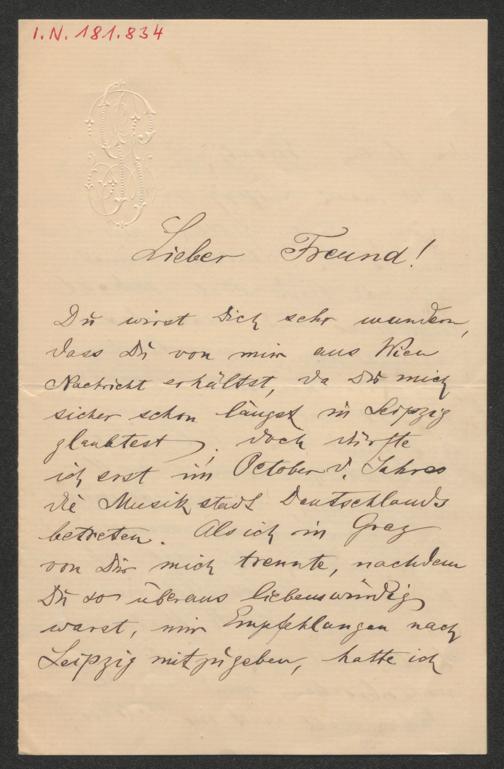 I.N. 181.834
Lieber Freund!
Du wirst Dich sehr wundern,
dass Du von mir aus Wien
Nachricht erhältst, da Du mich
sicher schon längst in Leipzig
glaubtest; doch dürfte
ich erst im October d. Jahres
die Musikstadt Deutschlands
betreten. Als ich in Graz
von Dir mich trennte, nachdem
Du so überaus liebenswürdig
warst, mir Empfehlungen nach
Leipzig mitzugeben, hatte ich